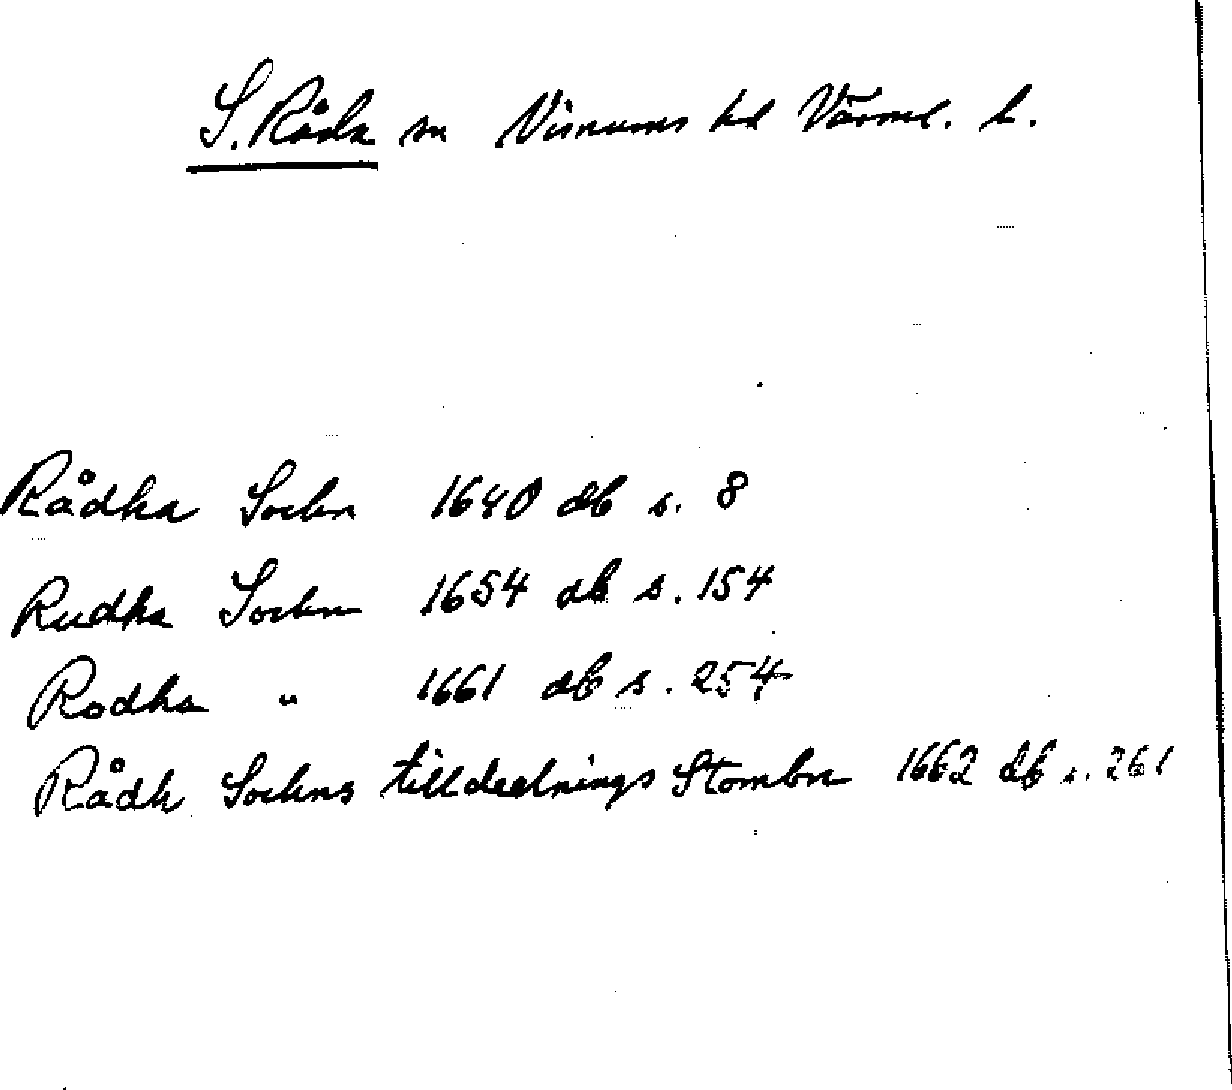 S. Råda sn Visnums hd Värml. l.
Rådha Sochn 1640 db s. 8
Rudha Sochn 1654 db s. 154
Rodha " 1661 db s. 254
Rådh Sochns tilldeelnings Stombn 1662 db s. 261